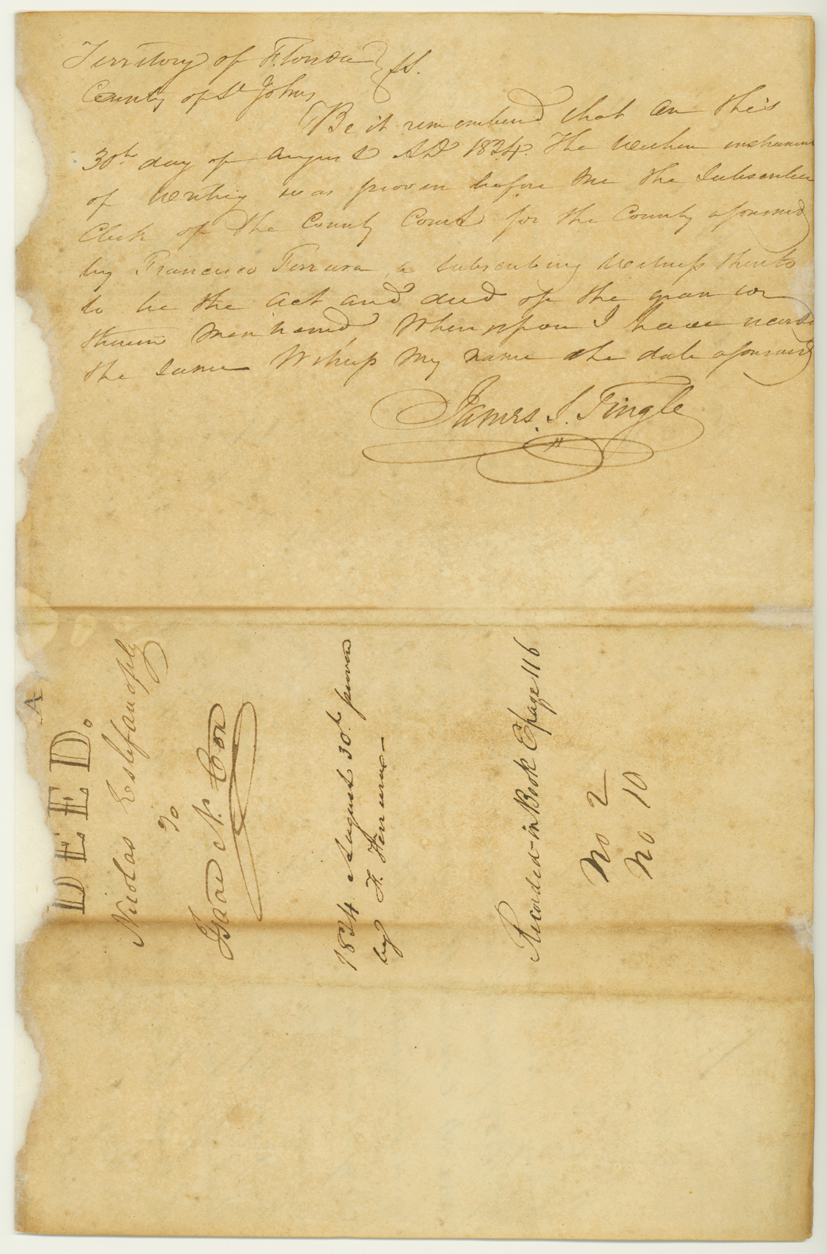 Territory of Florida } ss.
County of St Johns
Be it remembered that on this
30th day of August AD 1834. The within instrument
of writing was proven before me the Subscriber
Clerk of the County Court for the County aforesaid
by Francisco Ferrara, a subscribing Witness thereto
to be the act and deed of the gran tor
therein mentioned, Whereupon I have record
the same Witness my name the date aforesaid
James. S. Tingle
A
DEED.
Nicolas Estefanoply
to
Isaac N. Coon
1834 August 30th proven
by F. Ferrara—
Recorded in Book E page 116
No 2
No 10